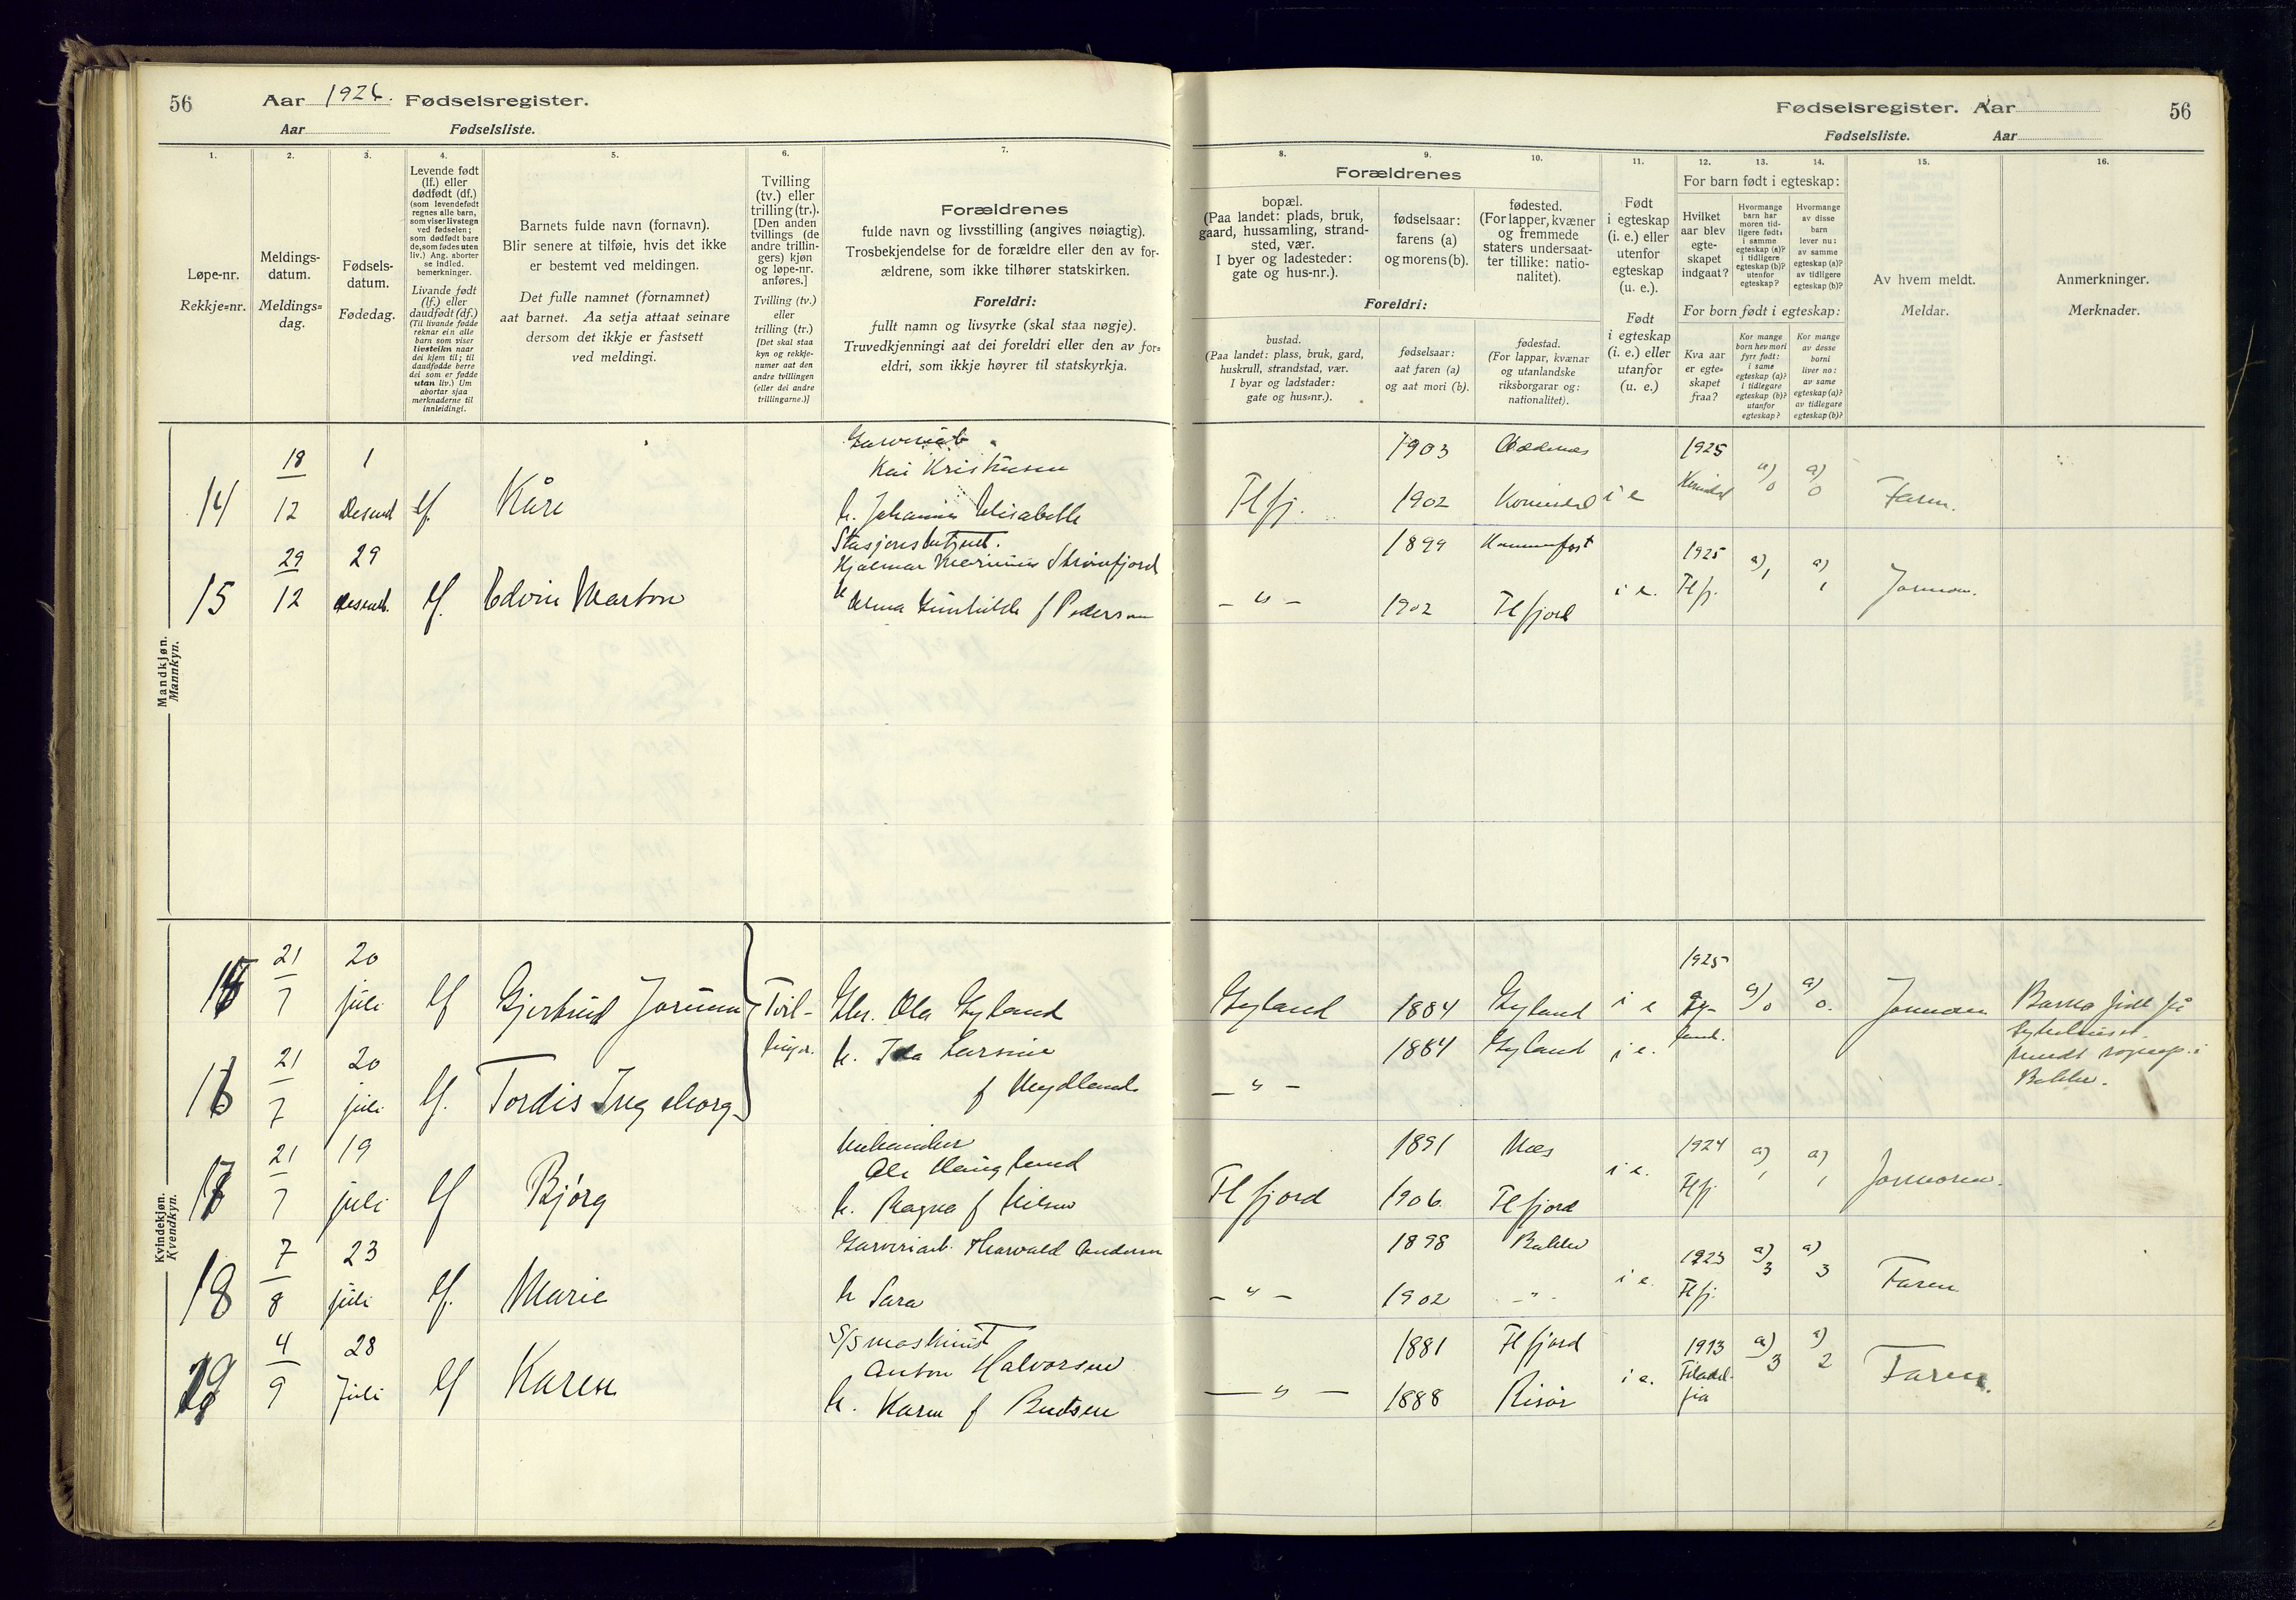 56
Aar 1926. Fødselsregister.
Aar Fødselsliste.
1.
2.
3.
4.
5.
6.
7.
Løpe-nr.
Rekkje=nr.
Meldings-
datum.
Meldings=
dag.
Fødsels-
datum.
Fødedag.
Levende født
(lf.) eller
dødfødt (df.)
(som levendefødt
regnes alle barn,
som viser livstegn
ved fødselen;
som dødfødt bare
de, som fødes uten
liv.) Ang. aborter
se indled.
bemerkninger.
Livande født
(lf.) eller
daudfødt (df.)
(Til livande fødde
reknar ein alle
barn som viser
livsteikn naar
dei kjem til; til
daudfødde berre
dei som er fødde
utan liv.) Um
abortar sjaa
merknaderne til
innleidingi.
Barnets fulde navn (fornavn).
Blir senere at tilføie, hvis det ikke
er bestemt ved meldingen.
Det fulle namnet (fornamnet)
aat barnet. Aa setja attaat seinare
dersom det ikkje er fastsett
ved meldingi.
Tvilling
(tv.) eller
trilling (tr.).
[Den anden
tvillings (de
andre trillin-
gers) kjøn
og løpe-nr.
anføres.]
Tvilling (tv.)
eller
trilling (tr.)
[Det skal staa
kyn og rekkje-
numer aat den
andre tvillingen
(eller dei andre
trillingarne.)]
Forældrenes
fulde navn og livsstilling (angives nøiagtig).
Trosbekjendelse for de forældre eller den av for-
ældrene, som ikke tilhører statskirken.
Foreldri:
fullt namn og livsyrke (skal staa nøgje).
Truvedkjenningi aat dei foreldri eller den av for=
eldri, som ikkje høyrer til statskyrkja.
Fødselsregister. Aar
56
Fødselsliste. Aar
8.
9.
10.
11.
12.
13.
14.
15.
16.
Forældrenes
bopæl.
(Paa landet: plads, bruk,
gaard, hussamling, strand-
sted, vær.
I byer og ladesteder:
gate og hus-nr.).
fødselsaar:
farens (a)
og morens (b).
fødested.
(For lapper, kvæner
og fremmede
staters undersaat-
ter tillike: natio-
nalitet).
Foreldri:
bustad.
(Paa landet: plass, bruk, gard,
huskrull, strandstad, vær.
I byar og ladstader:
gate og hus=nr.).
fødselsaar:
aat faren (a)
og aat mori (b).
fødestad.
(For lappar, kvænar
og utanlandske
riksborgarar og:
nationalitet).
Født
i egteskap
(i. e.) eller
utenfor
egteskap
(u. e.).
Født
i egteskap
(i. e.) eller
utanfor
(u. e.)
For barn født i egteskap:
Hvilket
aar blev
egte-
skapet
indgaat?
Hvormange
barn har
moren tid-
ligere født:
i samme
egteskap (a)?
i tidligere
egteskap (b)?
utenfor
egteskap?
Hvormange
av disse
barn
lever nu:
av samme
egteskap (a)?
av tidligere
egteskap (b)?
For born født i egteskap:
Kva aar
er egte=
skapet
fraa?
Kor mange
born hev mori
fyrr født:
i same
egteskap (a)?
i tidlegare
egteskap (b)?
utanfor
egteskap?
Kor mange
av desse
borni
liver no:
av same
egteskap (a)?
av tidlegare
egteskap (b)?
Av hvem meldt.
Meldar.
Anmerkninger.
Merknader.
Mandkjøn.
Mannkyn.
14
18
12
1
Desemb
lf.
Kåre
Garveriarb.
Kai Kristensen
h. Johanne Elisabeth
Fl fj.
1903
1902
Kvinesdal
i e
1925
a) 0
a) 0
Faren.
15
29
12
29
Desemb.
lf.
Edvin Marton
Stasjonsbetjent.
Hjalmar Marinius Skrovfjord
h Alma Gunhilde f Pedersen
— " —
1899
Hammerfest
1902
Fl fjord
i e.
1925
Fl fj.
a) 1
a) 1
Jormoren.
Kvindekjøn.
Kvendkyn.
15
21
7
20
juli
lf
Gjertrud Jorunn
Tvil-
linger.
Gbr. Ola Gyland
Gyland
1884
Gyland
i e
1925
Gy-
land.
a) 0
a) 0.
Jormoren
Barna født på
Sykehuset
i
Bakke.
16
21
7
20
juli
lf.
Tordis Ingeborg
h. Ida Larsine
f Møgdland
— " —
1884
Gyland
i e.
17
21
7
19
juli
lf
Bjørg
Mekaniker
Ole Haugland
h. Ragna f Nilsen
Fl fjord
1891
Næs
1906
Fl fjord
i e.
1924
Fl fj.
a) 1
a) 1
Jormoren.
18
7
8
23
juli
lf.
Marie
Garveriarb. Tharvald Andersen
h Sara
— " —
1898
Bakke
1902
- " -
i e.
1923
Fl fj.
a) 3
a) 3
Faren
19
4
9
28
Juli
lf
Karen
S/S maskinist
Anton Halvorsen
h. Karen f Bentsen
— " —
1881
Fl fjord
1888
Risør
i e.
1913
Filadel-
fia
a) 3
a) 2
Faren.